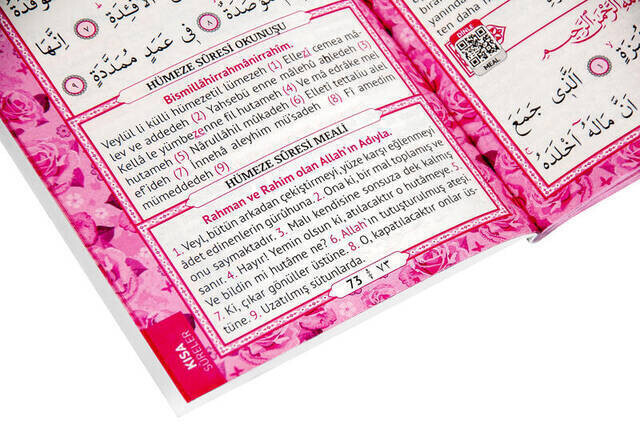 مُوصَدَةٌ ۝٨ فِى عَمَدٍ مُمَدَّدَةٍ ۝٩
اِنَّهَا
HÜMEZE SÛRESİ OKUNUŞU
Bismillâhirrahmânirrahîm.
Veylül li külli hümezetil lümezeh (1) Ellezî cemea mâ-
lev ve addedeh (2) Yahsebü enne mâlehû ahledeh (3)
Kellâ le yümbezenne fil hutameh (4) Ve mâ edrâke mel
hutameh (5) Nârullâhil mûkadeh (6) Elletî tettaliu alel
ef'ideh (7) İnnehâ aleyhim mü'sadeh (8) Fî amedim
mümeddedeh (9)
HÜMEZE SÛRESİ MEALİ
Rahman ve Rahim olan Allah'ın Adıyla.
1. Veyl, bütün arkadan çekiştirmeyi, yüze karşı eğlenmeyi
âdet edinenlerin gürûhuna. 2. Ona ki, bir mal toplamış ve
onu saymaktadır. 3. Malı kendisine sonsuza dek kalmış
sanır. 4. Hayır! Yemin olsun ki, atılacaktır o hutâmeye. 5.
Ve bildin mi hutâme ne? 6. Allah'ın tutuşturulmuş ateşi.
7. Ki, çıkar gönüller üstüne. 8. O, kapatılacaktır onlar üs-
tüne. 9. Uzatılmış sütunlarda.
73 ٧٣
KISA
SÛRELER
yanında
ten daha
MEAL
اَلَّذِى جَمَعَ
اَنَّ مَالَهُ اَخْلَدَهُ